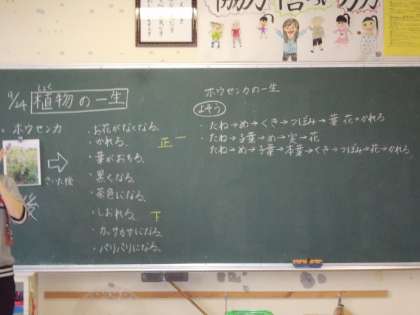 9/24 植物の一生
しょく
・ホウセンカ
さいた後
後
・お花がなくなる。
・かれる。
・葉がおちる。
・黒くなる。
・茶色になる。
・しおれる。
・カッサカサになる。
・パリパリになる。
正一
下
ホウセンカの一生
よそう
・たね→め→くき→つぼみ→葉 花→かれる
・たね→子葉→め→実→花
たね→め→子葉→本葉→くき→つぼみ→花→かれる